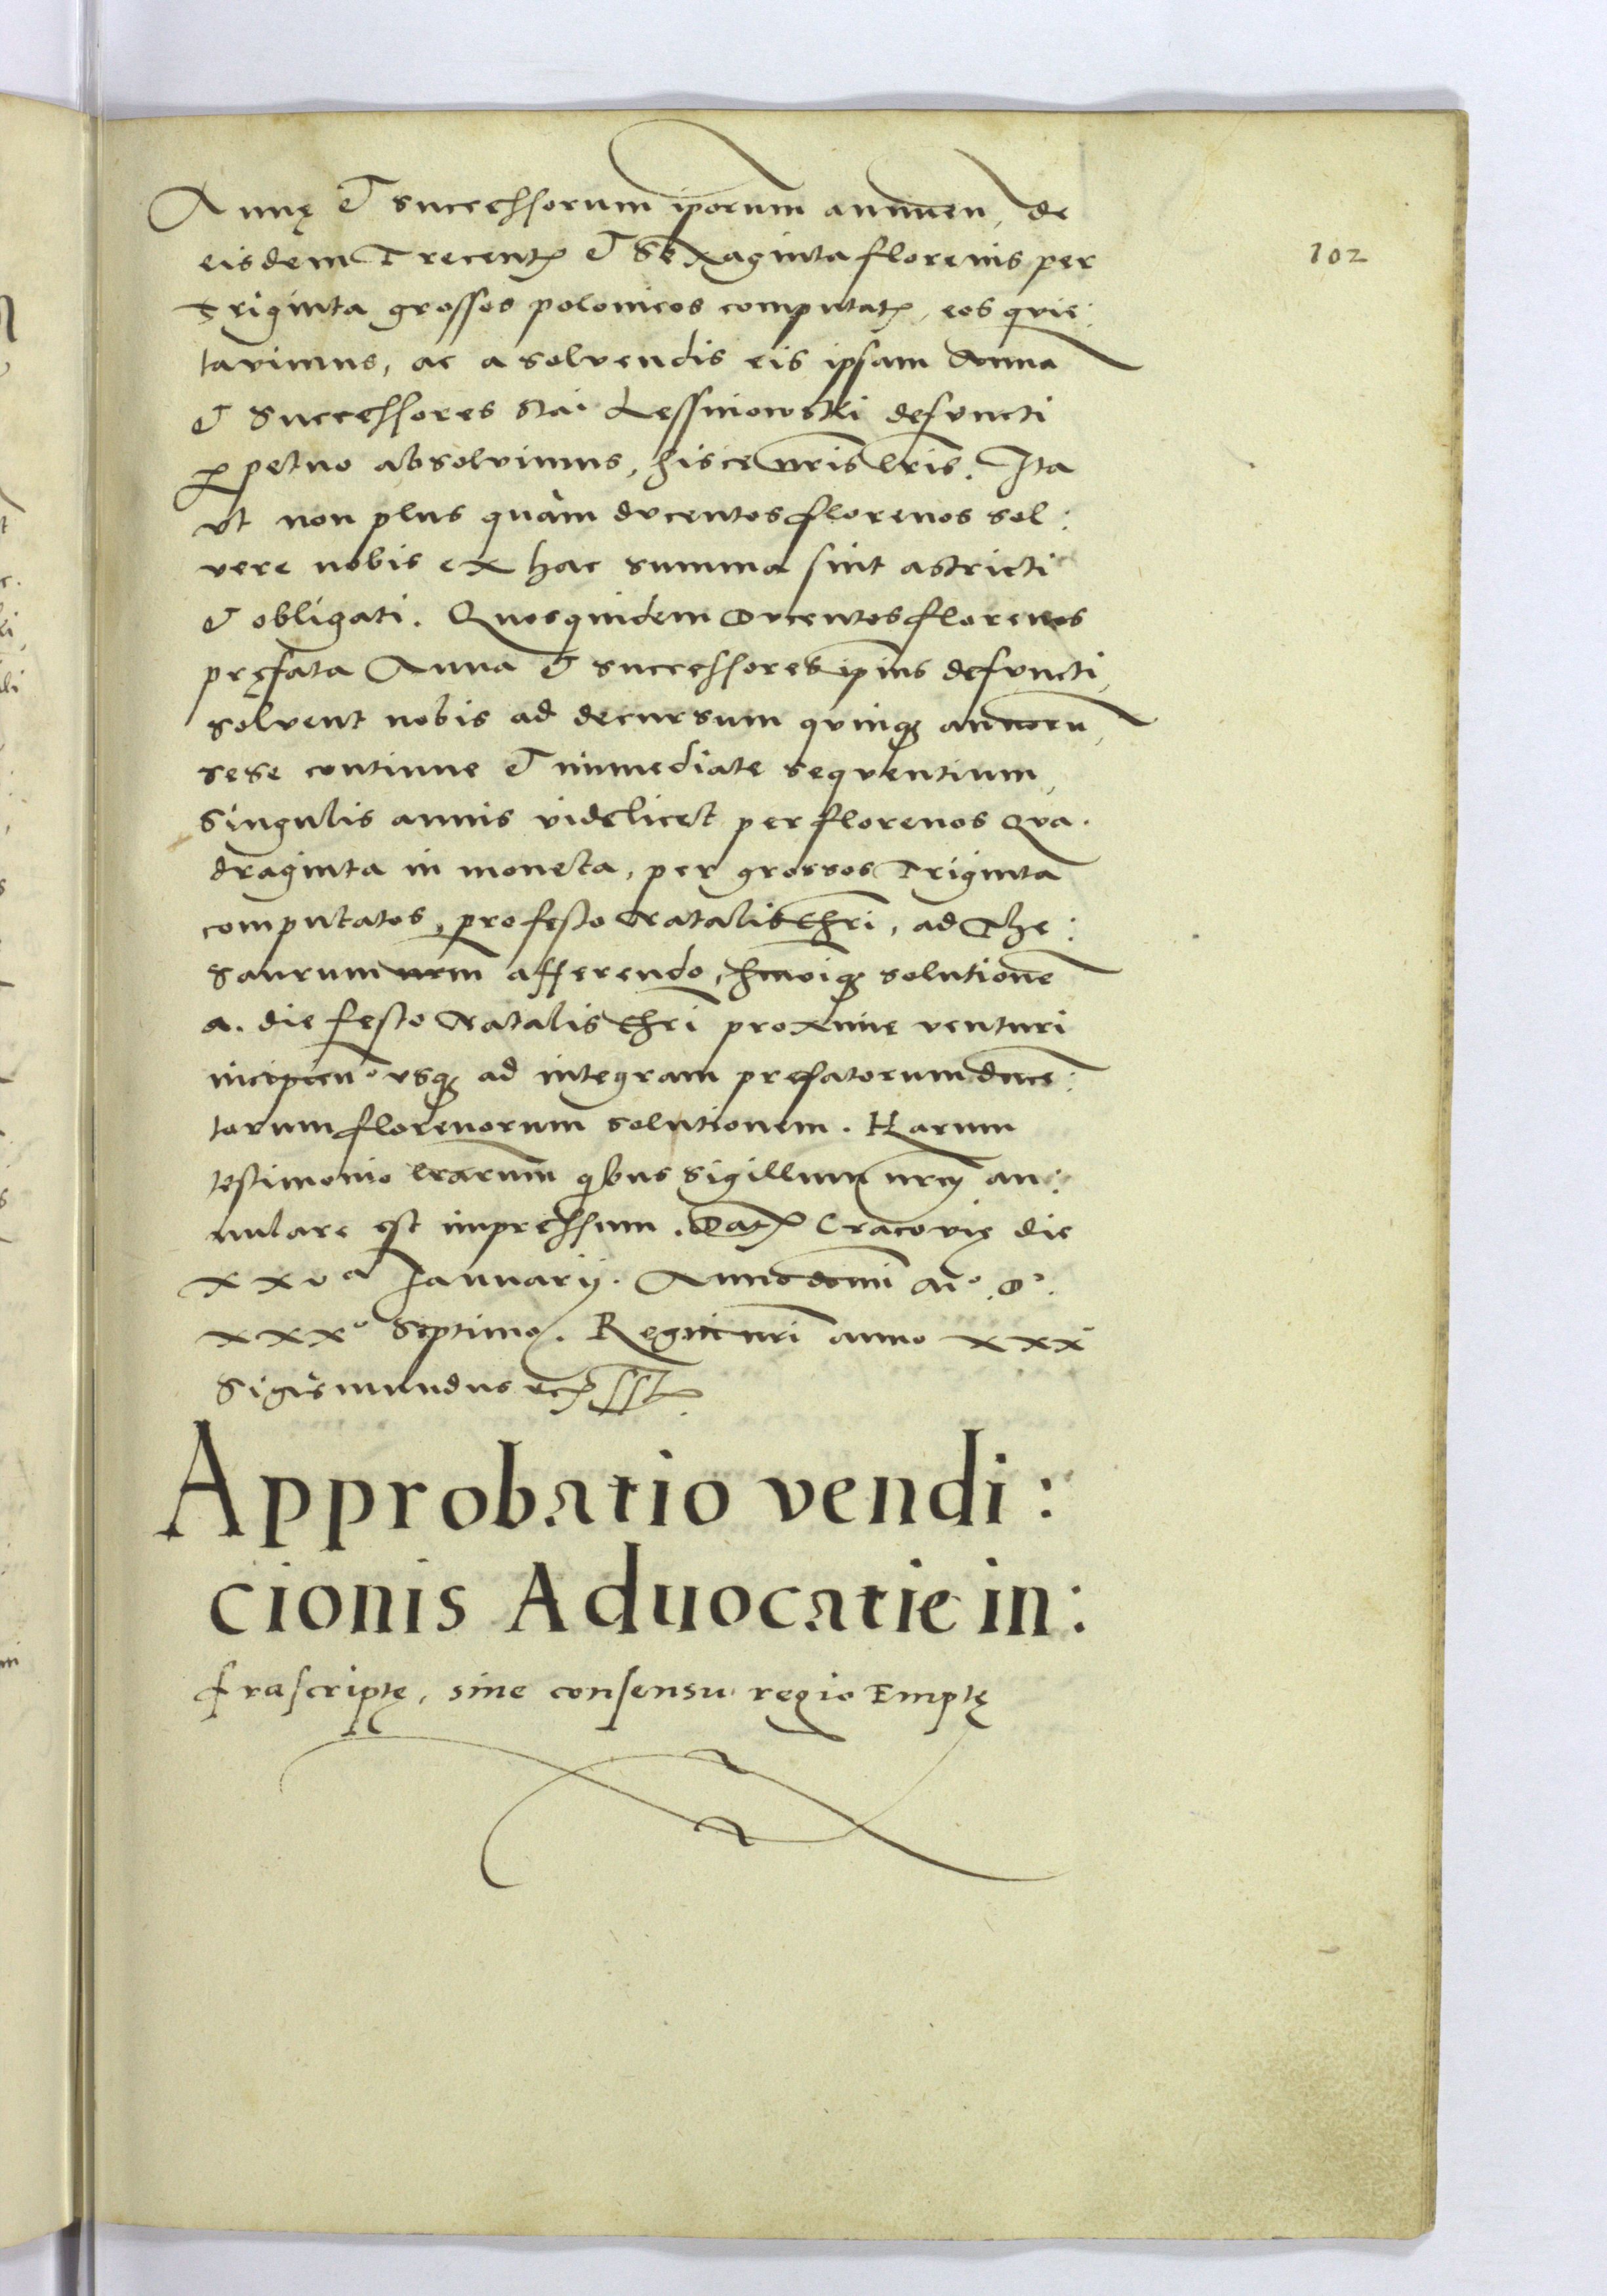 Annę et successorum ip̄orum annuen, de
102
eisdem Trecentꝭ et Sexaginta florenis per
Triginta grossos polonicos computatꝭ, eos qvie:
tavimus, ac a solvendis eis ipsam Anna
et Successores Stai Lessniowski defuncti
ꝑpetuo absolvimus, hisce nr̄is lr̄is. Ita
vt non plus quàm dvcentos florenos sol:
vere nobis ex hac summa sint astricti
et obligati. Quosquidem Dvcentos florenos
pręfata Anna et successores ip̄ius defvncti,
solvent nobis ad decursum qvinqꝫ annorū,
sese continue et immediate seqventium,
Singulis annis videlicet per florenos Qva.
draginta in moneta, per grossos Triginta
computatos, pro festo Natalis Chri̅, ad The:
saurum nr̄m afferendo, hmōiqꝫ solutionē
a. die festo Natalis Chri̅ proxime venturi
incipien° vsqꝫ ad integram prefatorum duce:
torum florenorum solutionem. Harum
testimonio lr̄arum qͥbus Sigillum nr̄m an:
nulare est impressum. Datꝭ Cracovię die
xxvᵃ Januarij. Anno domī M°. D°.
xxx° Septimo. Regni nr̄i anno xxx
Sigismundus rex sst
Approbatio vendi:
cionis Aduocatie in:
frascriptę, sine consensu regio Emptę